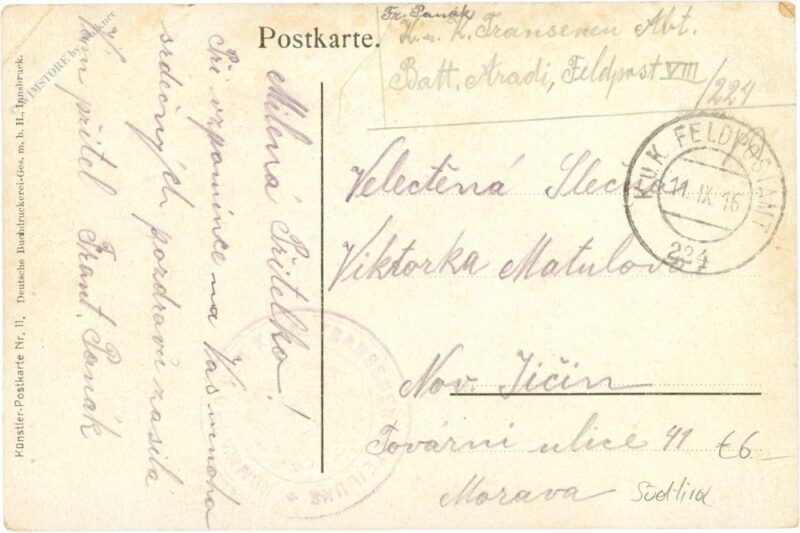 Postkarte.
Fr. Panák
K. u. K. Transenen Abt.
Batt. Aradi, Feldpost VIII
/224
K.U.K. FELDPOSTAMT
11. IX. 16
224
Velectěná Slečna
Viktorka Matulova
Nov. Jičin
Tovární ulice 41
Morava
€6-
Milená Přítelko!
Při vzpomínce na Vás mnoho
srdečných pozdravů zasílá
Vám přítel Frant. Panák
Künstler-Postkarte Nr. 11. Deutsche Buchdruckerei-Ges. m. b. H., Innsbruck.